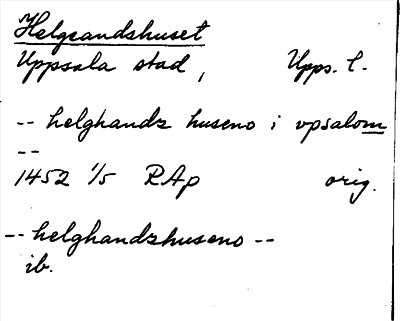 Helgeandshuset
Uppsala stad, Upps. l.
-- helghandz huseno i vpsalom
--
1452 1/5 RAp orig.
-- helghandzhuseno --
ib.